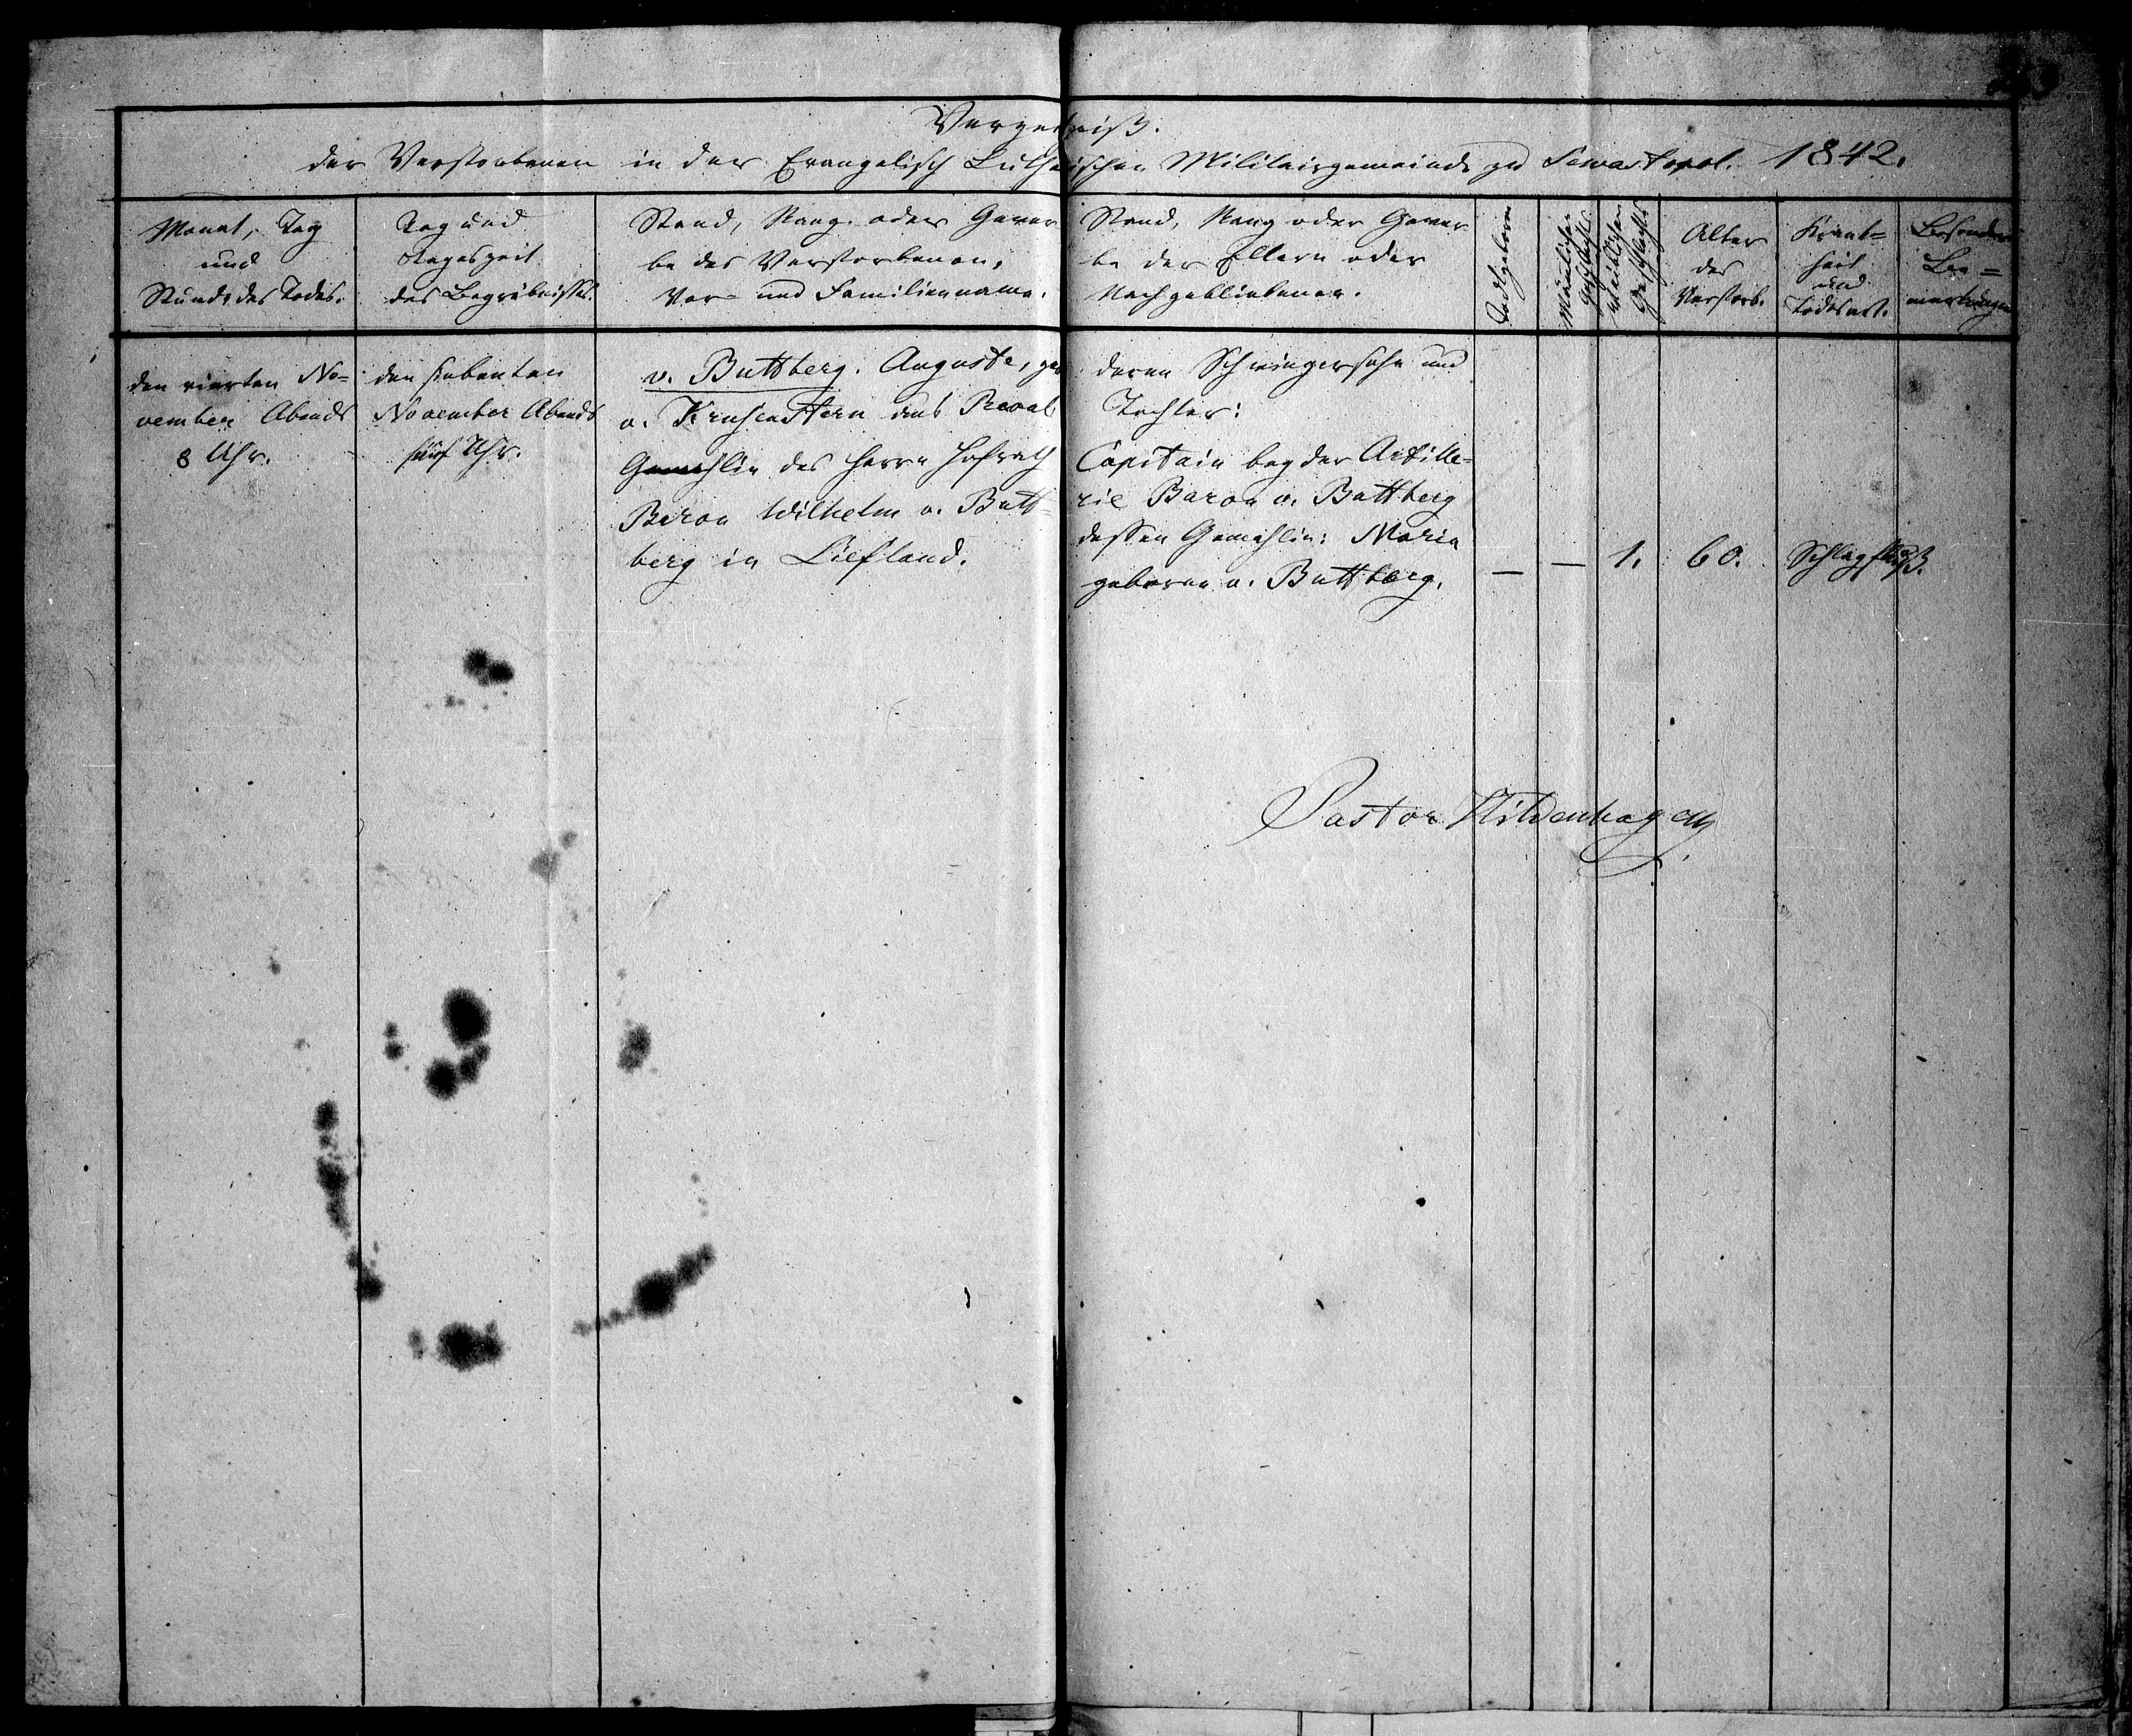 Verzeichniß.
der Verstorbenen in der Evangelisch Lutherischen Militairgemeinde zu Sewastopol. 1842.
Monat, Tag
und
Stunde des Todes.
Tag und
Tageszeit
des Begräbnisses.
Stand, Rang oder Gewer
be des Verstorbenen,
Vor- und Familienname.
Stand, Rang oder Gewer
be der Eltern oder
Nachgebliebenen.
Todtgeboren
Männlichen
Geschlechts
Weiblichen
Geschlechts
Alter
des
Verstorb.
Krank=
heit
und
Todesart.
Besondere
Be=
merkungen
den vierten No=
vember Abends
8 Uhr.
den siebenten
November Abends
fünf Uhr.
v. Buttberg. Auguste, geb
v. Krusenstern aus Reval
Gemahlin des Herrn Hofrath
Baron Wilhelm v. Butt=
berg in Liefland.
deren Schwiegersohn und
Tochter:
Capitain bey der Artille=
rie Baron v. Buttberg
dessen Gemahlin: Maria
geborene v. Buttberg.
— — 1. 60. Schlagfluß.
Pastor Kildenhagen